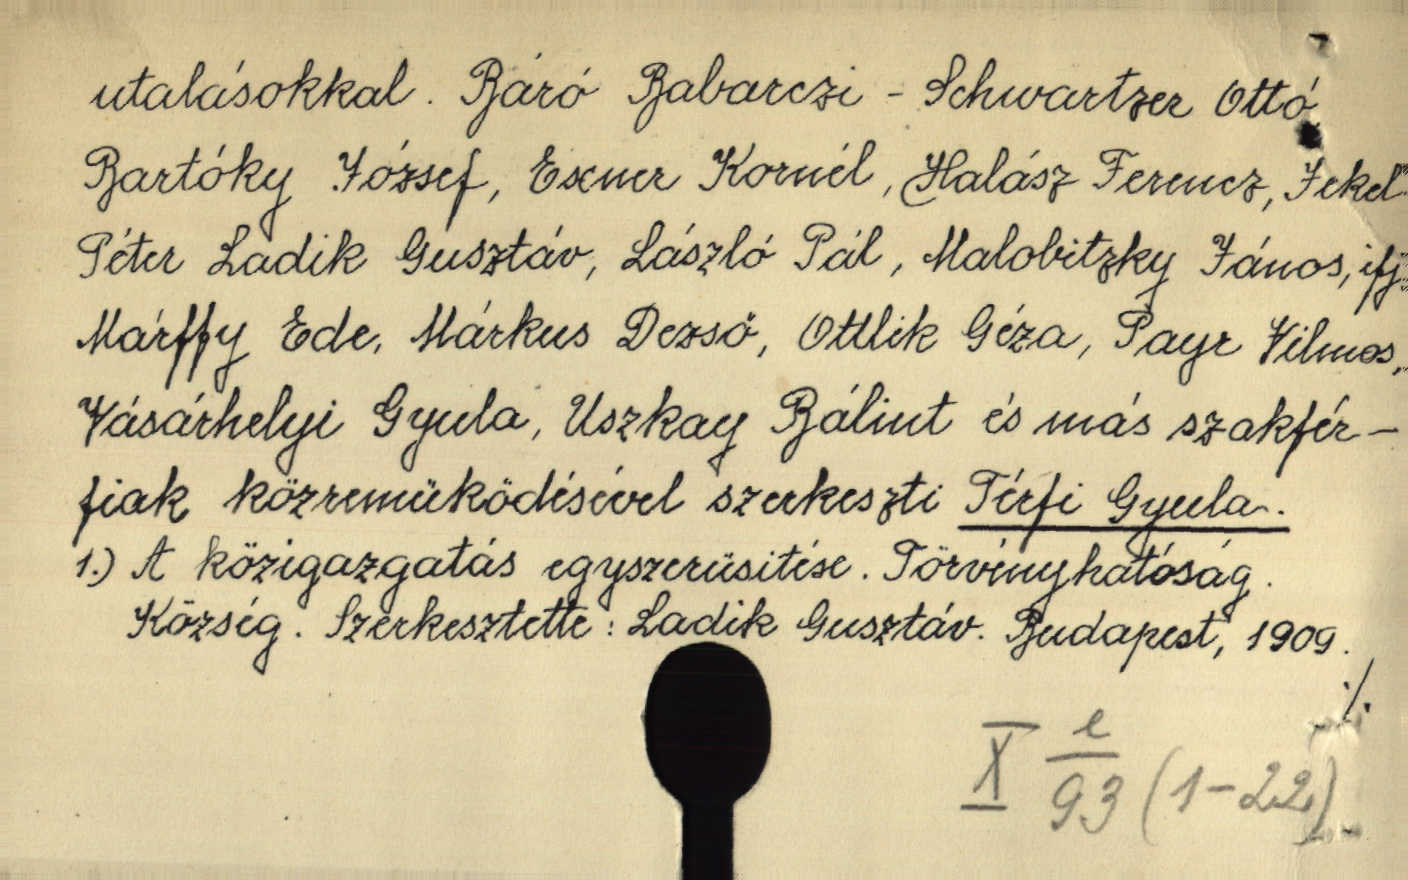 utalásokkal. Báró Babarczi - Schwartzer Ottó
Bartóky József, Exner Kornél, Halász Ferencz, Jekel
Péter Ladik Gusztáv, László Pál, Malobitzky János, ifj.
Márffy Ede, Márkus Dezső, Ottlik Géza, Payr Vilmos,
Vásárhelyi Gyula, Uszkay Bálint és más szakfér-
fiak közremüködésével szerkeszti Térfi Gyula.
1.) A közigazgatás egyszerüsitése. Törvényhatóság.
Község. Szerkesztette: Ladik Gusztáv. Budapest, 1909.
./.
X e/93 (1-22)